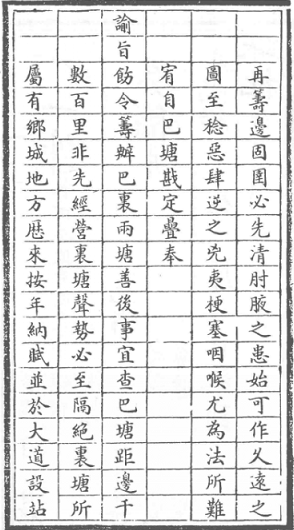 再籌邊固圉必先清肘腋之患始可作久遠之
圖至稔惡肆逆之兇夷梗塞咽喉尤為法所難
宥自巴塘戡定疊奉
諭旨飭令籌辦巴裏兩塘善後事宜查巴塘距邊千
數百里非先經營裏塘聲勢必至隔絕裏塘所
屬有鄉城地方歷來按年納賦並於大道設站